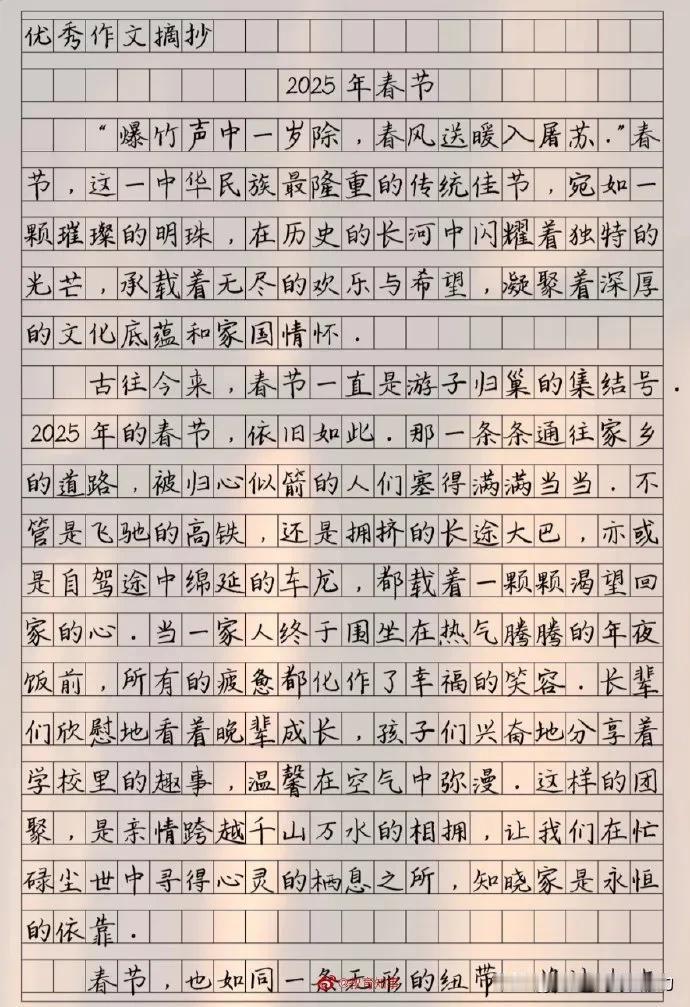 优秀作文摘抄
2025年春节
“爆竹声中一岁除，春风送暖入屠苏.”春
节，这一中华民族最隆重的传统佳节，宛如一
颗璀璨的明珠，在历史的长河中闪耀着独特的
光芒，承载着无尽的欢乐与希望，凝聚着深厚
的文化底蕴和家国情怀.
古往今来，春节一直是游子归巢的集结号.
2025年的春节，依旧如此.那一条条通往家乡
的道路，被归心似箭的人们塞得满满当当.不
管是飞驰的高铁，还是拥挤的长途大巴，亦或
是自驾途中绵延的车龙，都载着一颗颗渴望回
家的心.当一家人终于围坐在热气腾腾的年夜
饭前，所有的疲惫都化作了幸福的笑容.长辈
们欣慰地看着晚辈成长，孩子们兴奋地分享着
学校里的趣事，温馨在空气中弥漫.这样的团
聚，是亲情跨越千山万水的相拥，让我们在忙
碌尘世中寻得心灵的栖息之所，知晓家是永恒
的依靠.
春节，也如同一条无形的纽带